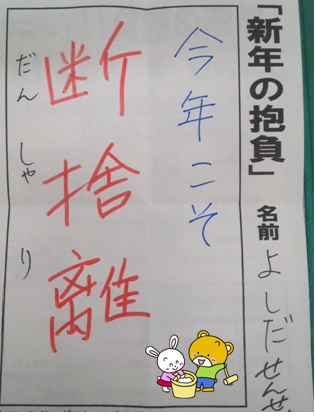 「新年の抱負」
名前 よしだせんせ
今年こそ
断捨離
だんしゃり